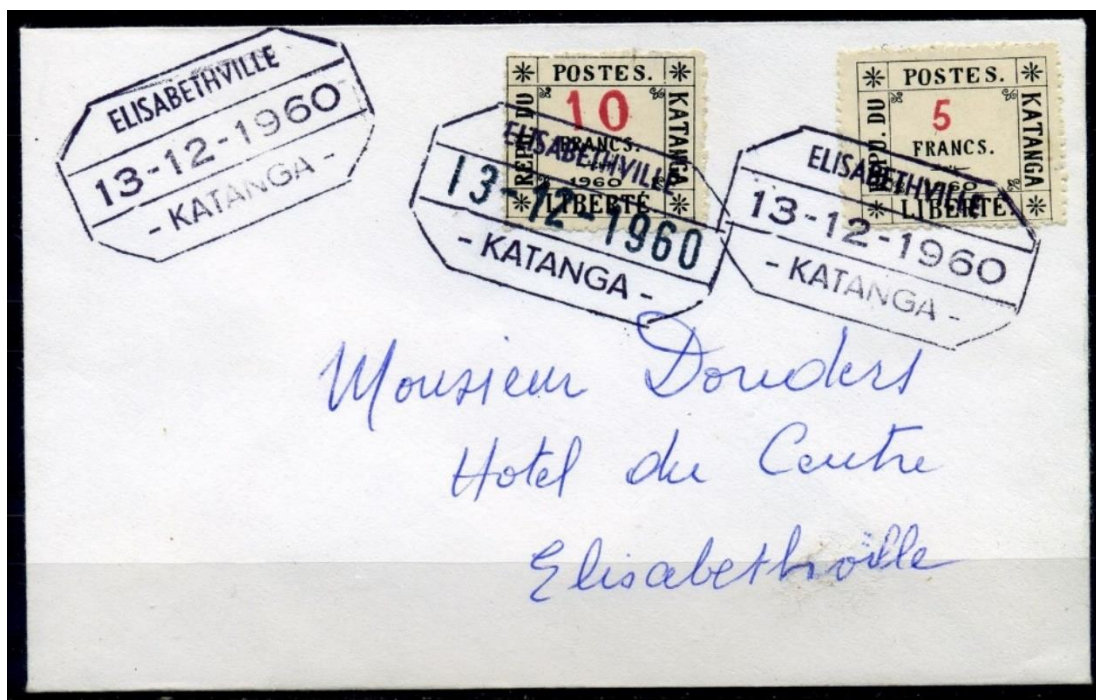 ELISABETHVILLE
13-12-1960
- KATANGA -
POSTES.
RÉPU. DU
10
FRANCS.
1960
KATANGA
LIBERTÉ
ELISABETHVILLE
13-12-1960
- KATANGA -
POSTES.
RÉPU. DU
5
FRANCS.
1960
KATANGA
LIBERTÉ
ELISABETHVILLE
13-12-1960
- KATANGA -
Monsieur Donders
Hotel du Centre
Elisabethville